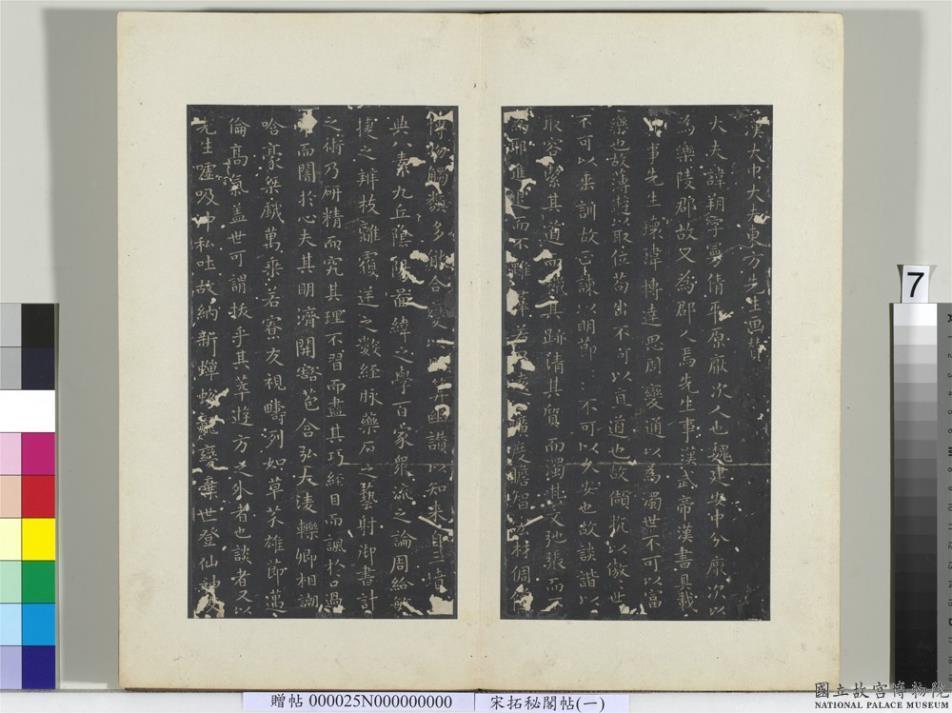 漢大中大夫東方先生畫贊
大夫諱朔字曼倩平原厭次人也魏建安中分厭次以
為樂陵郡故又為郡人焉先生事漢武帝漢書具載
事先生瓌瑋博達思周變通以為濁世不可以富
樂也故薄遊取位苟出不可以直道也故頡抗以傲世
不可以垂訓故正諫以明節〻〻不可以久安也故談諧以
取容潔其道而穢其跡清其質而濁其文弛張而不
為耶進退而不離群若乃遠心曠度贍智宏材倜儻
博物觸類多能合變以明筭幽讚以知來自三墳
典八素九丘陰陽圖緯之學百家衆流之論周給敏
捷之辨枝離覆逆之數經脉藥石之藝射御書計
之術乃研精而究其理不習而盡其巧經目而諷於口過
耳而闇於心夫其明濟開豁苞含弘大淩轢卿相謿
哈豪桀戲萬乘若寮友視疇列如草芥雄節邁
倫高氣蓋世可謂拔乎其萃遊方之外者也談者又以
先生噓吸沖和吐故納新蟬蛻龍變棄世登仙神
7
贈帖 000025N000000000 宋拓秘閣帖(一)
國立故宮博物院
NATIONAL PALACE MUSEUM